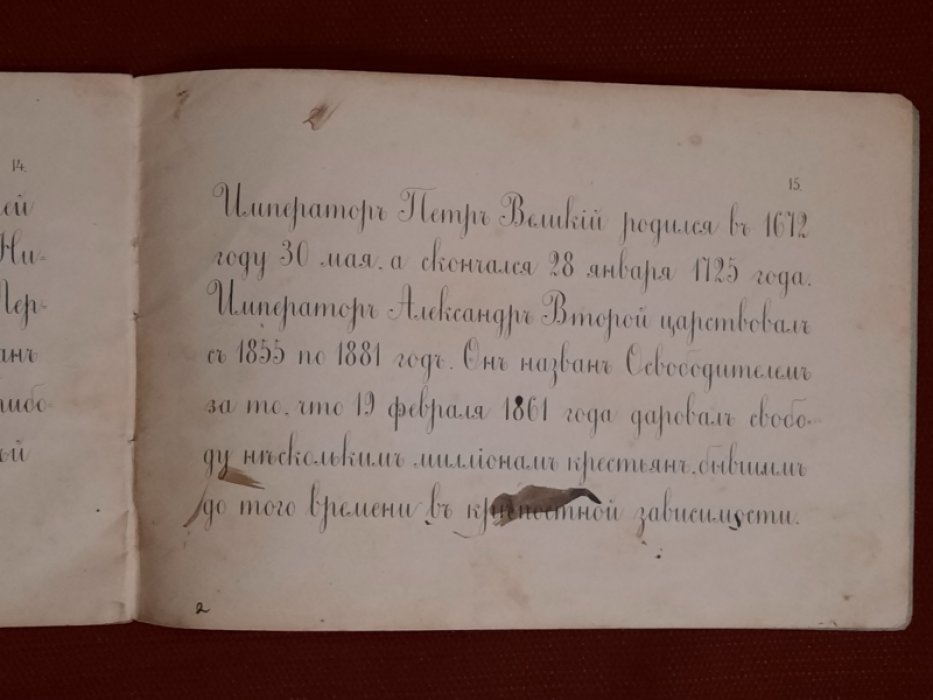 14.
ей
Ни-
Пер-
анъ
либо-
ый
15.
Императоръ Петръ Великій родился въ 1672
году 30 мая, а скончался 28 января 1725 года.
Императоръ Александръ Второй царствовалъ
съ 1855 по 1881 годъ. Онъ названъ Освободителемъ
за то, что 19 февраля 1861 года даровалъ свобо-
ду нѣсколькимъ милліонамъ крестьянъ, бывшимъ
до того времени въ крѣпостной зависимости.
2